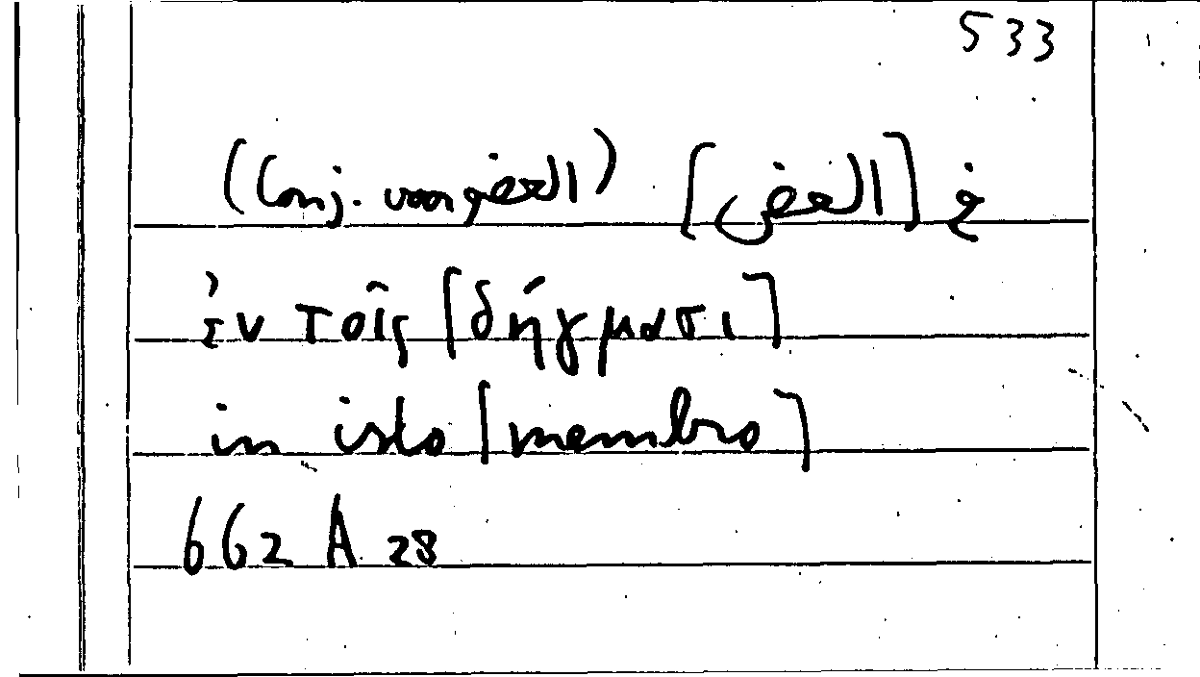 533
(Conj. voor العضو) [العض] في
ἐν τοῖς [δήγμασι]
in isto [membro]
662 A 28